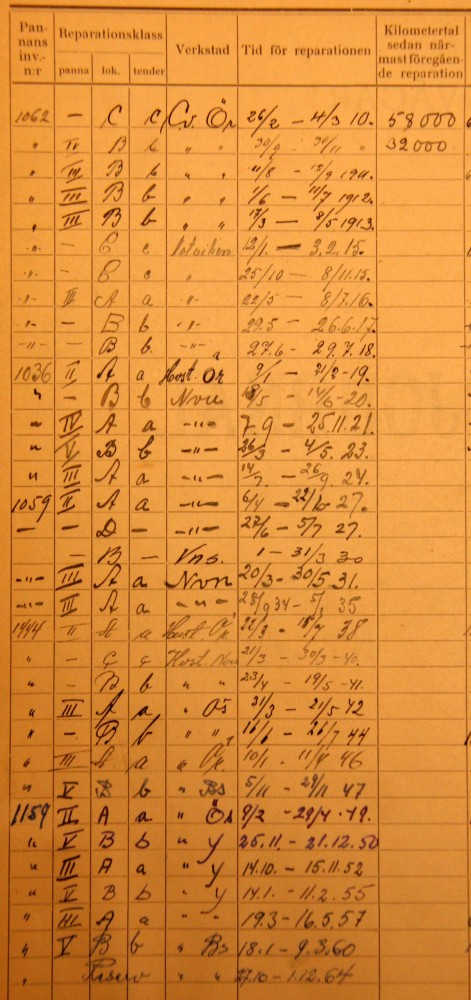 Pan-
nans
inv.-
n:r
Reparationsklass
panna lok. tender
Verkstad
Tid för reparationen
Kilometertal
sedan när-
mast föregåen-
de reparation
1062 — C c Cv. Ör 26/2 — 4/3 10. 58000
" IV B b " " 30/9 - 30/11 " 32000
" III B b " " 11/8 - 15/9 1911.
" III B b " " 1/6 — 11/7 1912.
" III B b " " 17/3 — 8/5 1913.
-"- — C c 12/1. — 3.2.15.
-"- - C c " 25/10 — 8/11.15.
-"- II A a -"- 22/5 — 8/7.16.
-"- — B b -"- 29.5 — 26.6.17
-"- — B b. -"- 27.6 - 29.7.18.
1036 II A a Hvst. Ör 9/1 — 21/2-19.
" - B b Nvn 18/5 — 14/6-20.
" IV A a -"- 7.9 — 25.11.21.
" V B b -"- 26/3 — 4/5. 23.
" III A a -"- 14/7. — 26/9. 24.
1059 II A a -"- 6/4 — 27.
— - D - -"- 27/6 — 5/7 27.
- B - Vns. 1 - 31/3 30
-"- III A a Nvn 20/3 - 30/5 31.
-"- III A a -"- 28/9 34 - 5/1 35
1444 II A a Hvst. Ör 22/3 - 38
" - C c Hvst. Nvn 21/3 - 30/3 -40.
" - B b " " 23/4 - 19/5 -41.
" III A a " Ös 31/3 - 21/5 42
" - B b " " 16/6 - 26/7 44
" III A a " Ör 10/1 - 11/4 46
" V B b " Bs 5/11 - 29/11 47
1159 II A a " Ös 9/2 - 29/4 -49.
" V B b " Y 25.11. - 21.12.50
" III A a " Y 14.10. - 15.11.52
" V B b " Y 14.1. - 11.2. 55
" III A a " " 19.3 - 16.5.57
" V B b " Bs 18.1 - 9.3.60
" " " 27.10 - 1.12.64